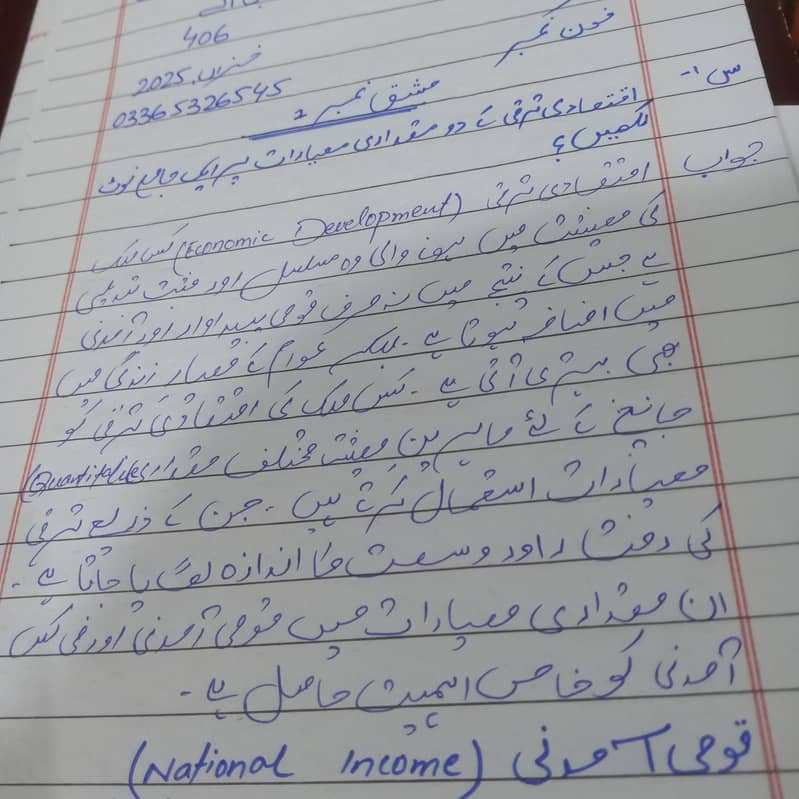 406
خزاں، 2025
فون نمبر 03365326545
مشق نمبر 2
س ۱- اقتصادی ترقی کے دو مقداری معیارات پر ایک جامع نوٹ
لکھیں؟
جواب اقتصادی ترقی (Economic Development) کسی ملک
کی معیشت میں ہونے والی وہ مسلسل اور مثبت تبدیلی
ہے جس کے نتیجے میں نہ صرف قومی پیداوار اور آمدنی
میں اضافہ ہوتا ہے۔ بلکہ عوام کے معیار زندگی میں
بھی بہتری آتی ہے۔ کسی ملک کی اقتصادی ترقی کو
جانچنے کے لئے ماہرین معیشت مختلف مقداری (
معیارات استعمال کرتے ہیں۔ جن کے ذریعے ترقی
کی رفتار اور وسعت کا اندازہ لگایا جاتا ہے۔
ان مقداری معیارات میں قومی آمدنی اور فی کس
آمدنی کو خاص اہمیت حاصل ہے۔
قومی آمدنی (National Income)